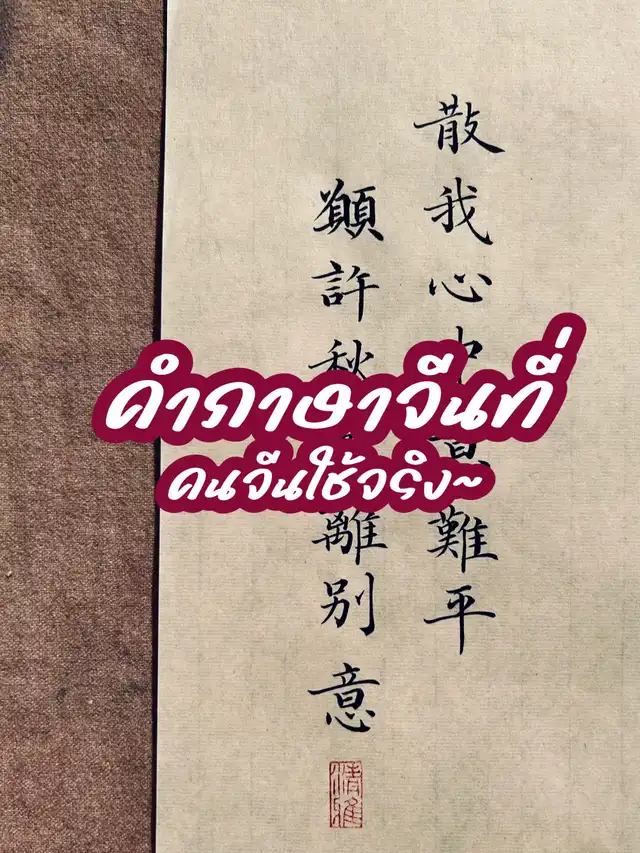 散我心中難平
願許秋離別意
คำภาษาจีนที่
คนจีนใช้จริง~
清雅